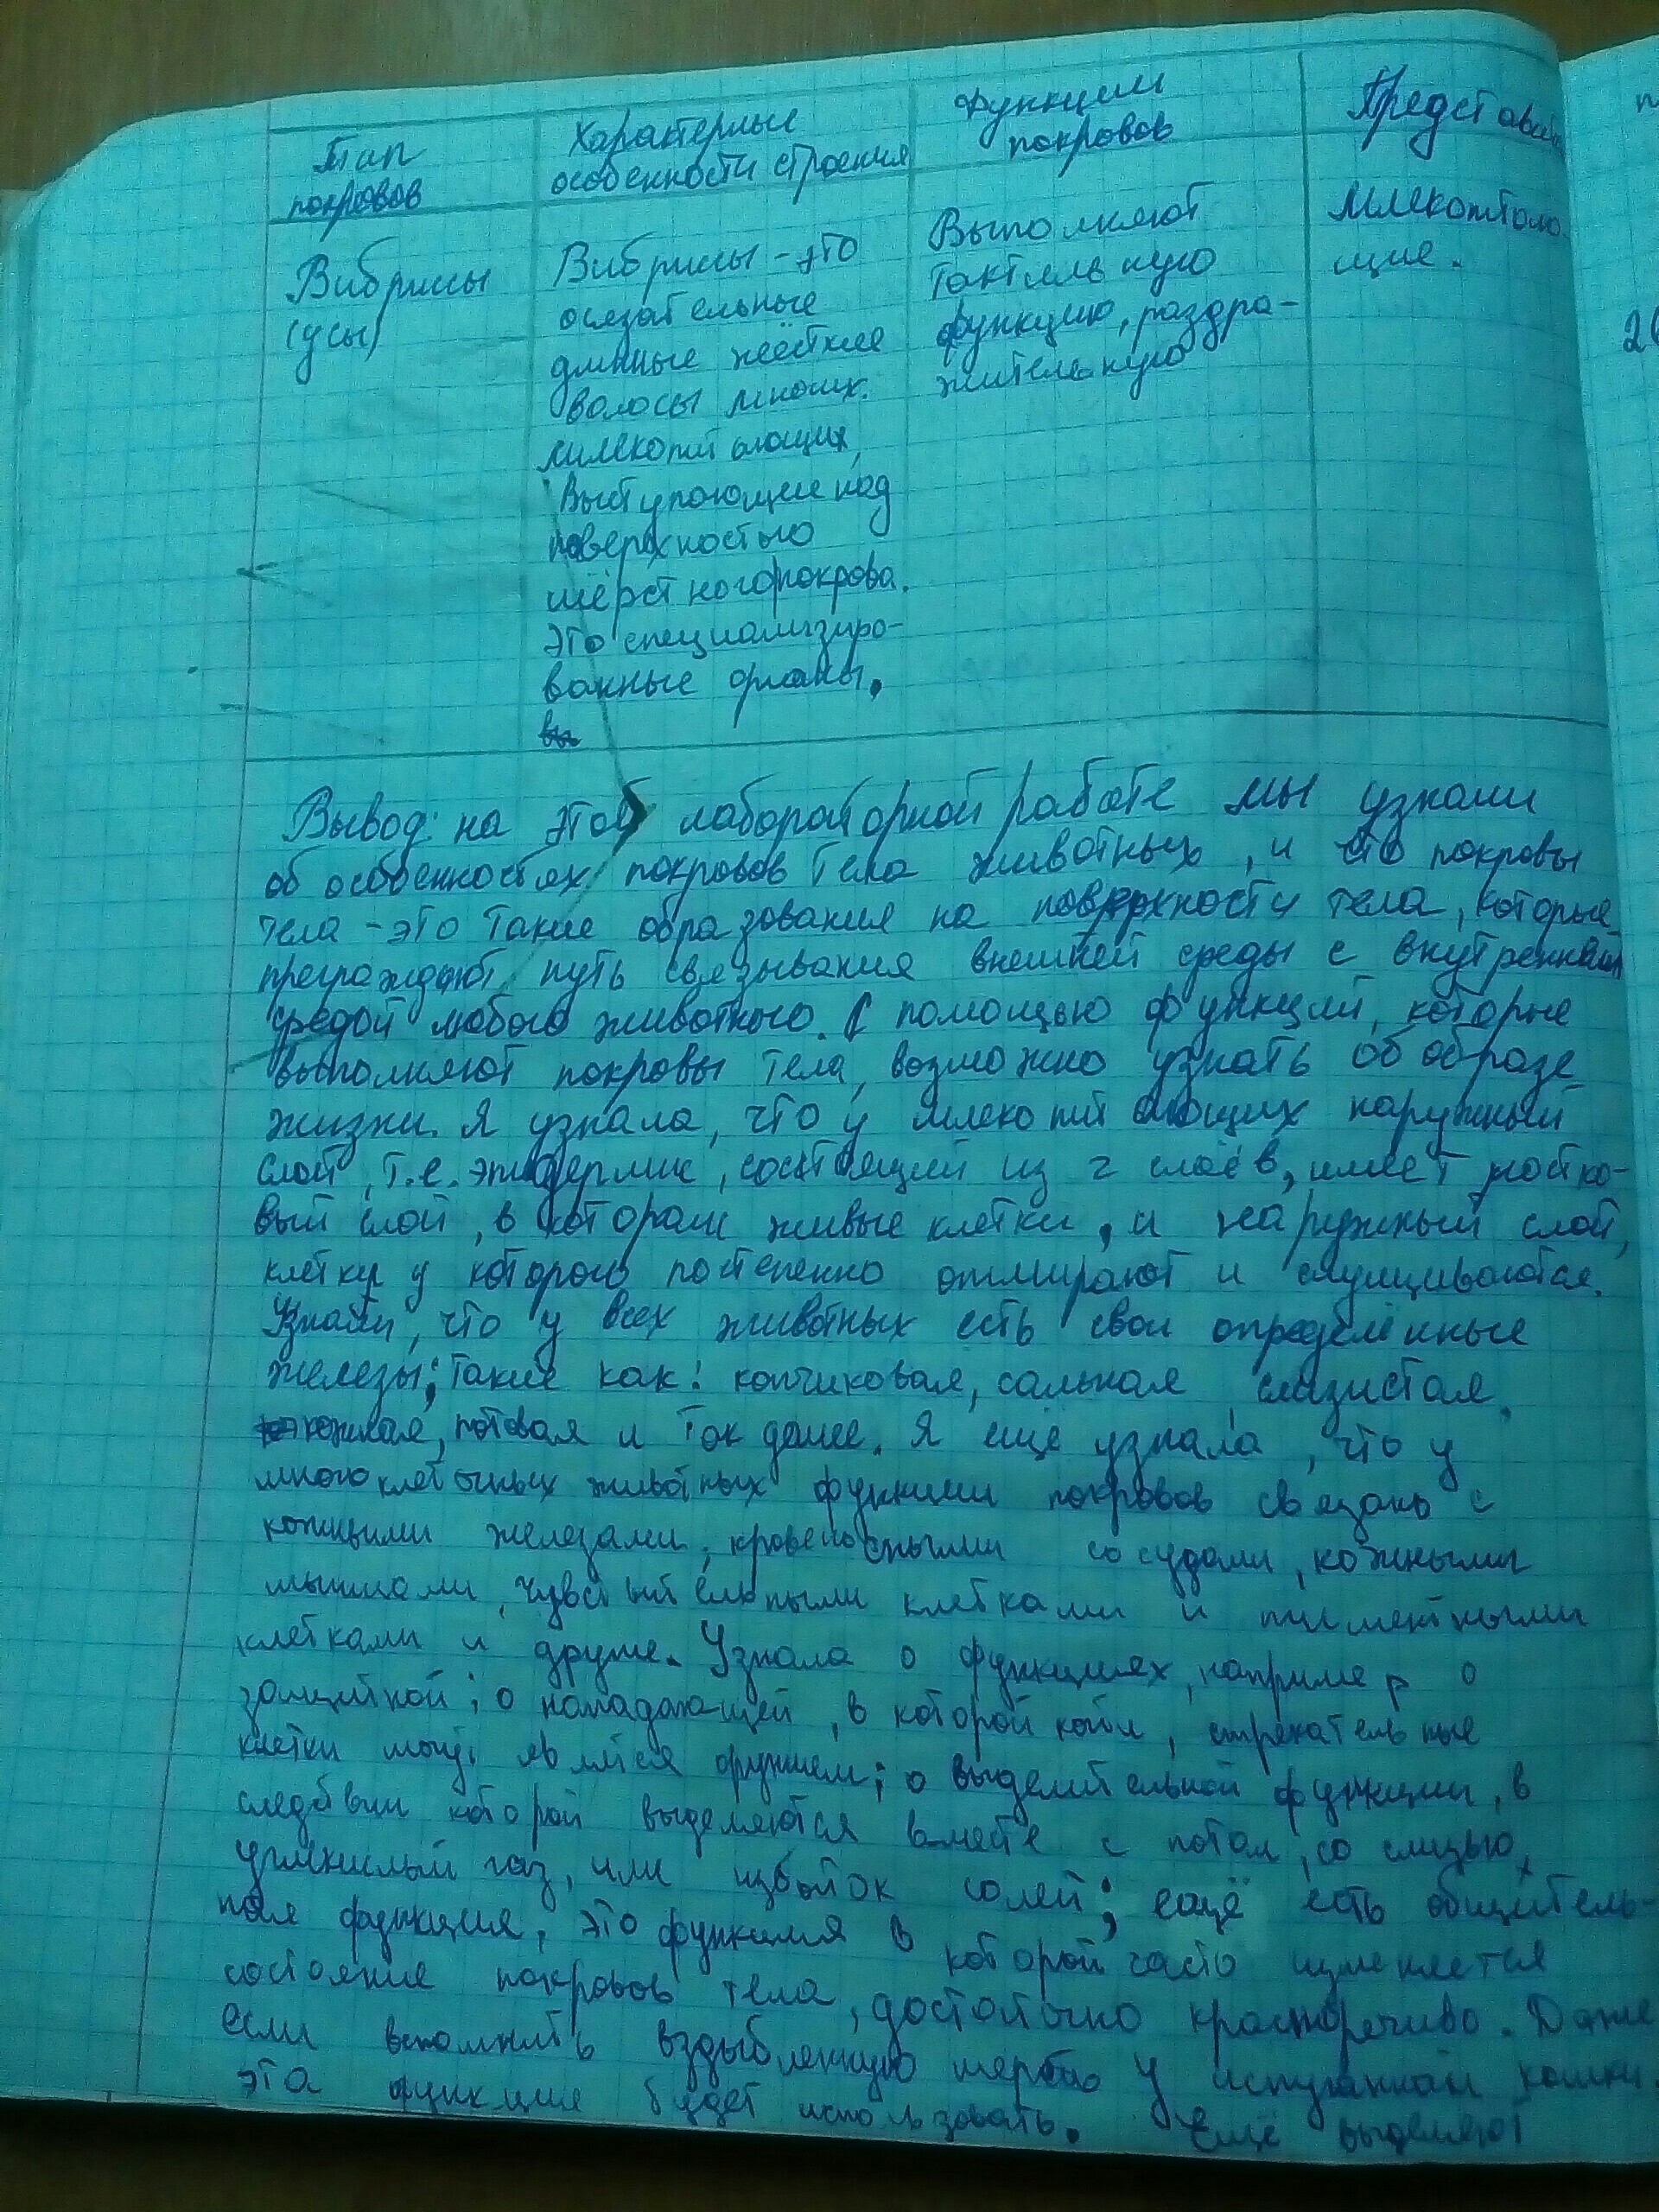 Тип
покровов
Характерные
особенности строения
Функции
покровов
Представи
Вибриссы
(усы)
Вибриссы - это
осязательные
длинные жёсткие
волосы многих
млекопитающих,
выступающие над
поверхностью
шёрстного покрова.
Это специализиро-
ванные органы.
Выполняют
тактильную
функцию, раздра-
жительную
Млекопитаю-
щие.
Вывод: на этой лабораторной работе мы узнали
об особенностях покровов тела животных, и что покровы
тела - это такие образования на поверхности тела, которые
преграждают путь связывания внешней среды с внутренней
средой любого животного. С помощью функций, которые
выполняют покровы тела, возможно узнать об образе
жизни. Я узнала, что у млекопитающих наружный
слой, т.е. эпидермис, состоящий из 2 слоёв, имеет ростко-
вый слой, в котором живые клетки, и наружный слой,
клетки у которого постепенно отмирают и слущиваются.
Узнали, что у всех животных есть свои определённые
железы; такие как: копчиковая, сальная, слизистая,
кожная, потовая и так далее. Я ещё узнала, что у
многоклеточных животных функции покровов связаны с
кожными железами, кровеносными сосудами, кожными
мышцами, чувствительными клетками и пигментными
клетками и другие. Узнала о функциях, например о
защитной; о нападающей, в которой когти, стрекательные
клетки могут являтся оружием; о выделительной функции, в
следствии которой выделяются вместе с потом, со слизью,
углекислый газ, или избыток солей; ещё есть общитель-
ная функция, это функция в которой часто изменяется
состояние покровов тела, достаточно красноречиво. Даже
если вспомнить вздыбленную шерсть у испуганной кошки.
эта функция будет использовать. Ещё выделяют